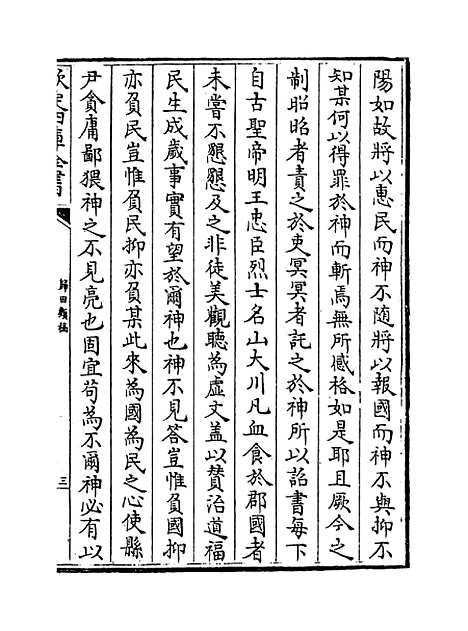 陽如故將以惠民而神不隨將以報國而神不與抑不
知某何以得罪於神而斬焉無所感格如是耶且厥今之
制昭昭者責之於吏冥冥者託之於神所以詔書每下
自古聖帝明王忠臣烈士名山大川凡血食於郡國者
未嘗不懇懇及之非徒美觀聽為虛文蓋以贊治道福
民生成歲事實有望於爾神也神不見答豈惟負國抑
亦負民豈惟負民抑亦負某此來為國為民之心使縣
尹貪庸鄙猥神之不見亮也固宜苟為不爾神必有以
欽定四庫全書
歸田類稿
三